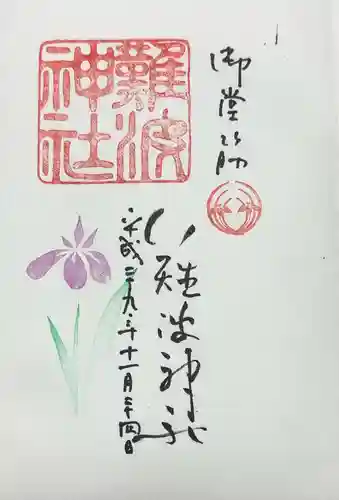 御堂筋
難波神社
平成二十九年十一月二十四日
難波神社